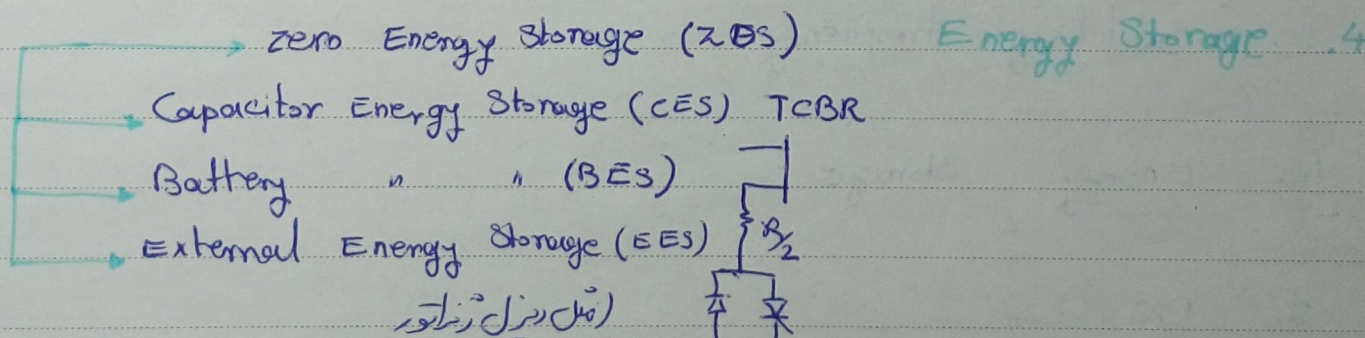 Energy Storage .4
zero Energy Storage (ZES)
Capacitor Energy Storage (CES) TCBR
Battery " " (BES)
External Energy Storage (EES)
R/2
(مثل دیزل ژنراتور